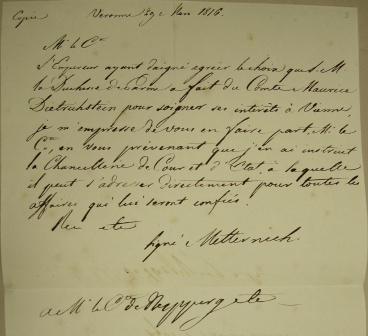 Copie Veronne 29 e Mars 1816.
M. le Cte
S. Empereur ayant daigné agréer le choix que S. M
la Duchesse de Parme a fait du Comte Maurice
Dietrichstein pour soigner ses intérêts à Vienne,
je m'empresse de vous en faire part, M. le
Cte, en vous prévenant que j'en ai instruit
la Chancellerie de Cour et d'Etat, à laquelle
il peut s'adresser directement pour toutes les
affaires qui lui seront confiées.
etc
signé Metternich.
a M. le Cte de Neipperg etc